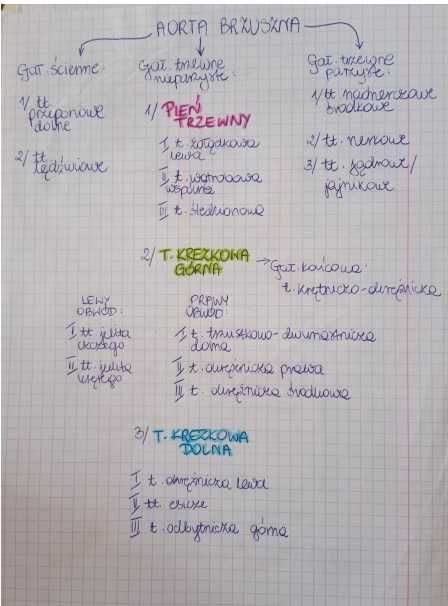 AORTA BRZUSZNA
Gał. ścienne:
1/ tt
przeponowe
dolne
2/ tt
lędźwiowe
Gał. trzewne
nieparzyste:
1/ PIEŃ
TRZEWNY
I t. żołądkowa
lewa
II t. wątrobowa
wspólna
III t. śledzionowa
Gał. trzewne
parzyste:
1/ tt nadnerczowe
środkowe
2/ tt. nerkowe
3/ tt. jądrowe/
jajnikowe
2/ T. KREZKOWA
GÓRNA
→ Gał. końcowa:
t. krętniczo-okrężnicza
LEWY
OBWÓD:
I tt jelita
czczego
II tt. jelita
krętego
PRAWY
OBWÓD:
I t. trzustkowo-dwunastnicza
dolna
II t. okrężnicza prawa
III t. okrężnicza środkowa
3/ T. KREZKOWA
DOLNA
I t. okrężnicza lewa
II tt. esicze
III t. odbytnicza górna